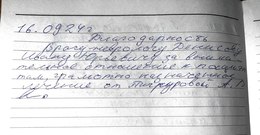 16.0924г
Благодарность
Врачу-неврологу Денисову
Ивану Юрьевичу за внима-
тельное отношение к пациен-
там, грамотно назначенное
лечение от